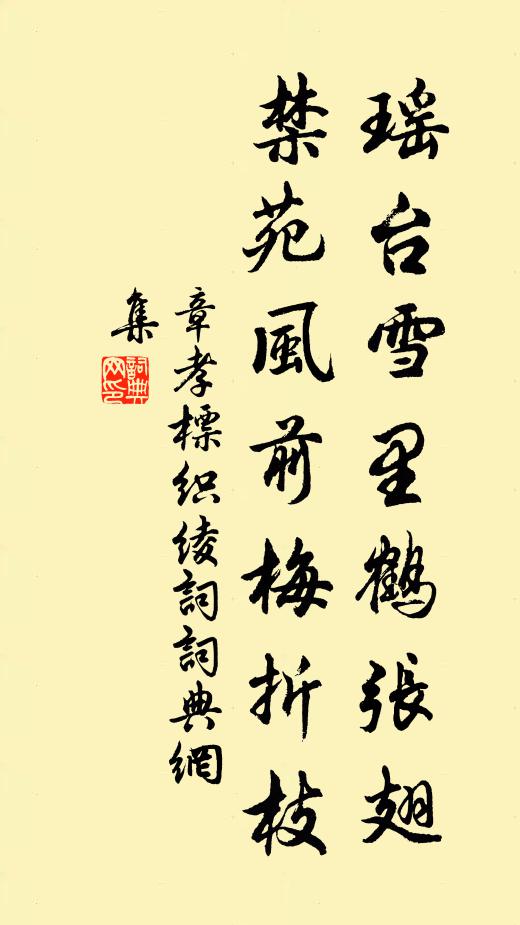 瑶台雪里鶴張翅
禁苑風前梅折枝
章孝標织綾詞詞典網
集
詞典
网印